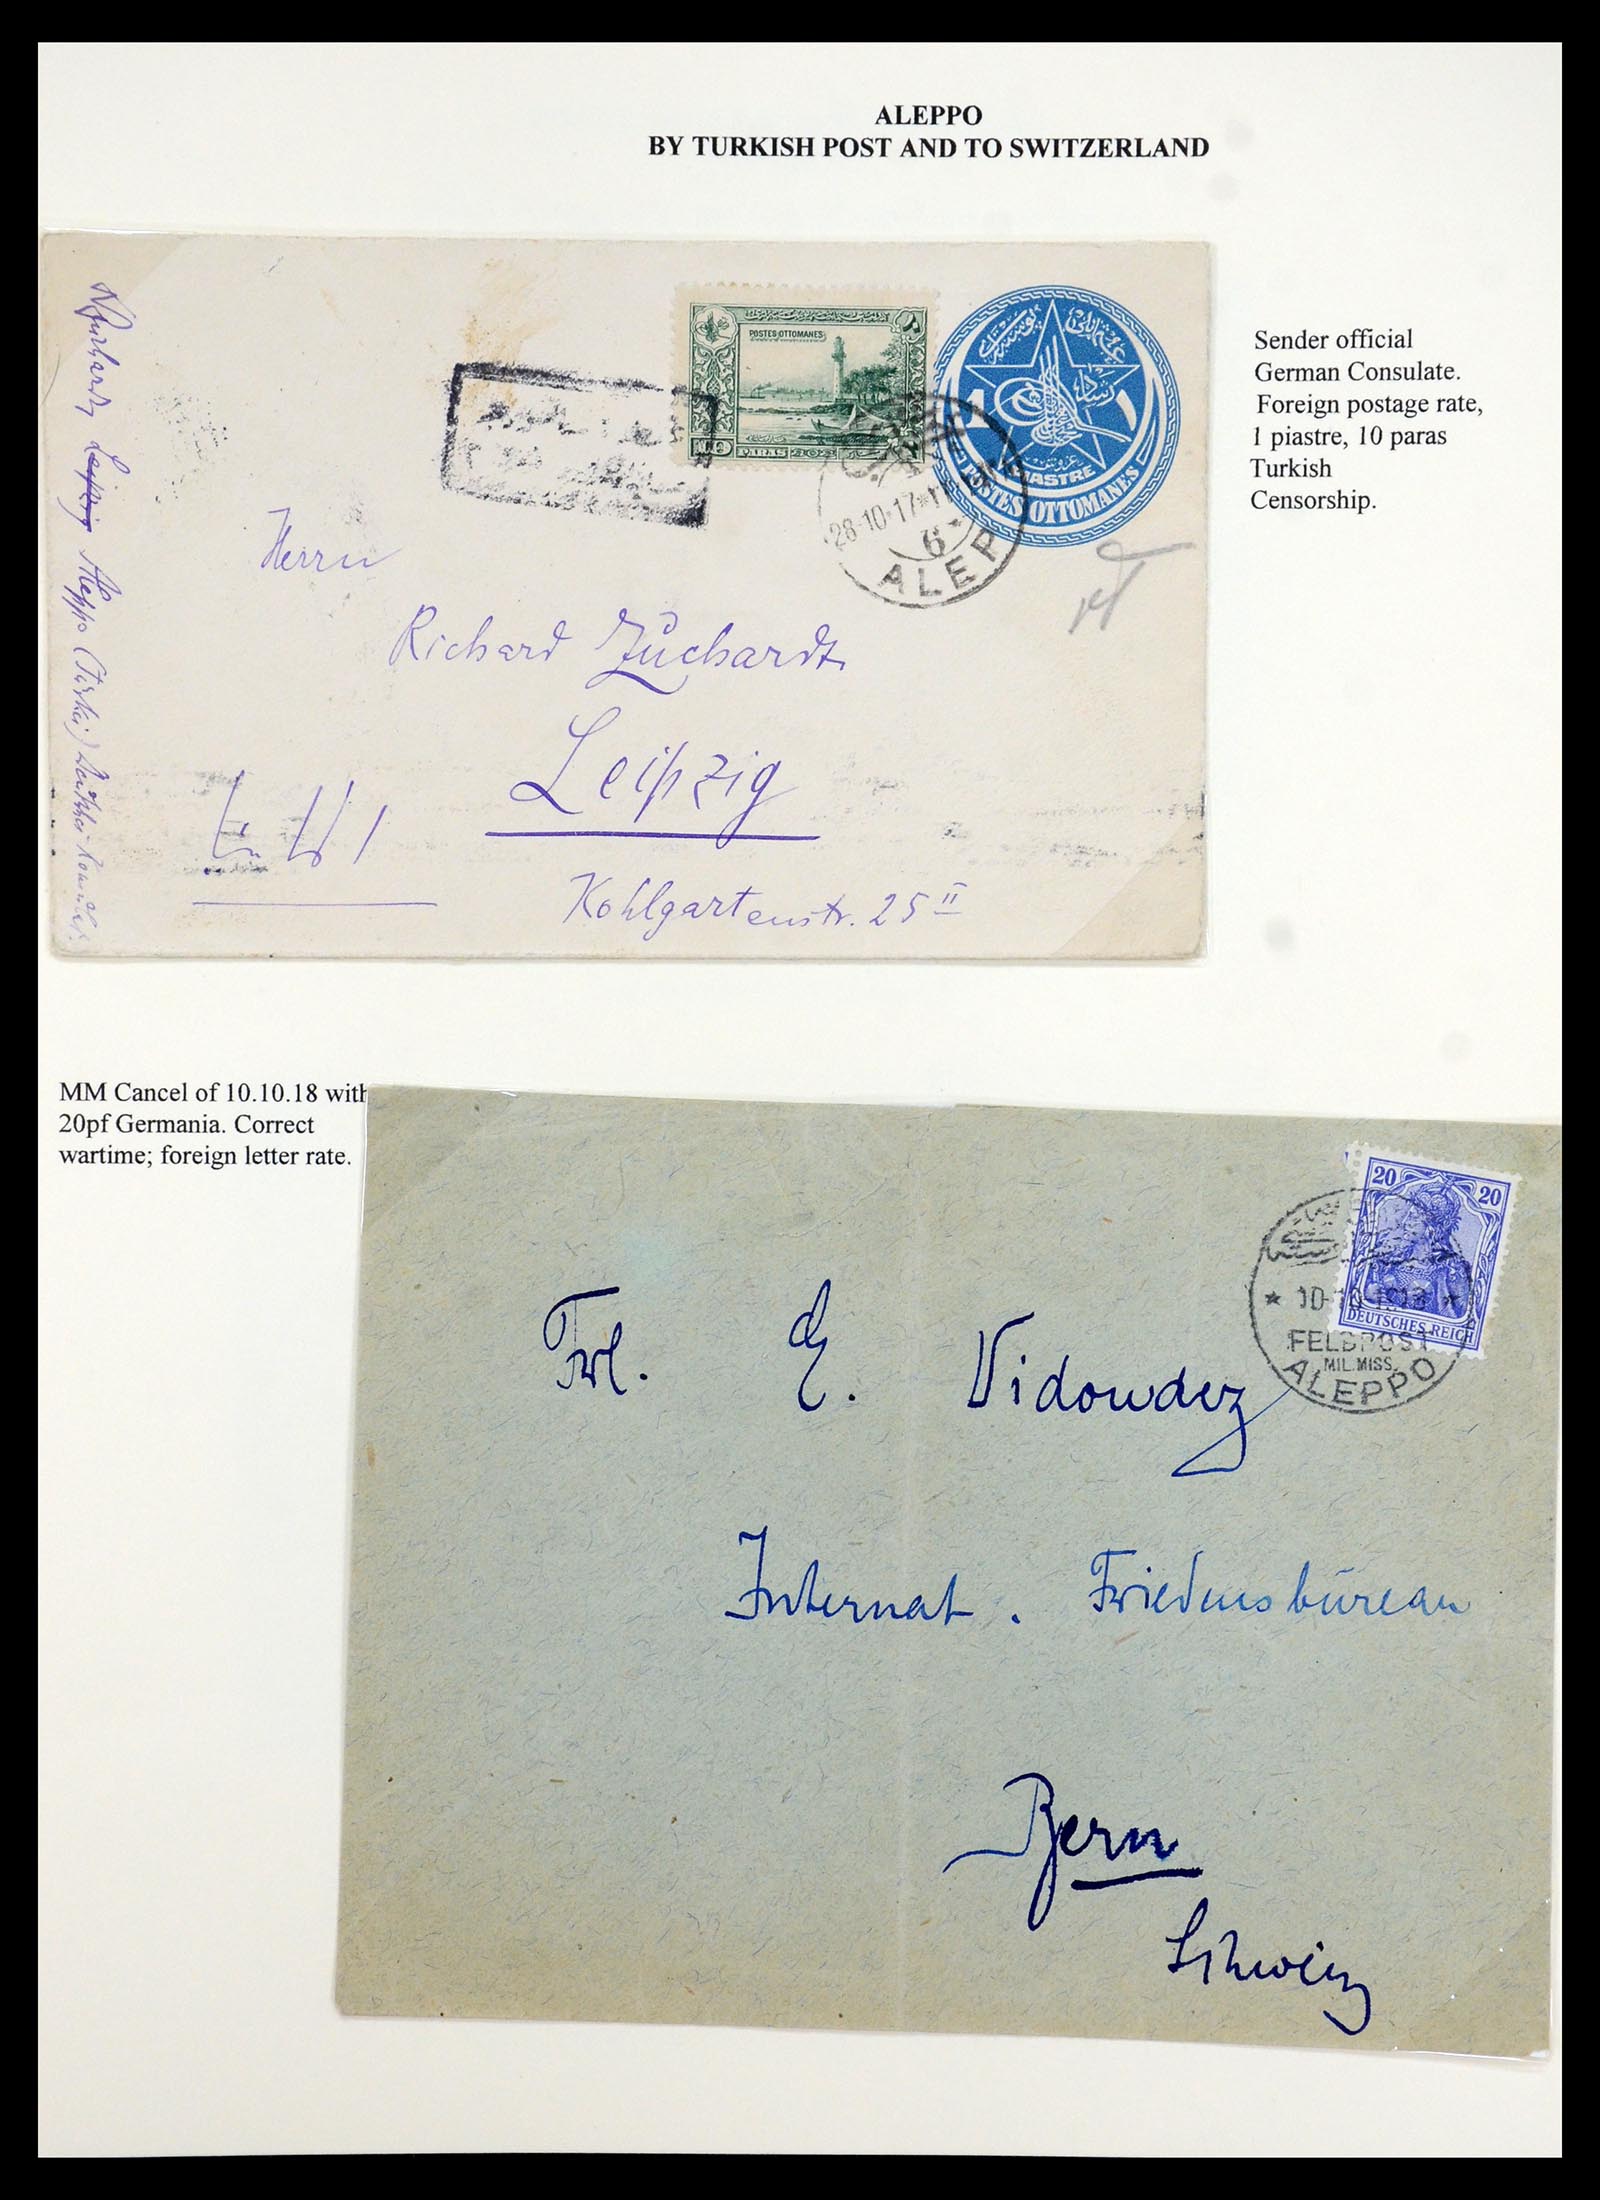 ALEPPO
BY TURKISH POST AND TO SWITZERLAND
POSTES OTTOMANES
10 PARAS
1 1
PIASTRE
POSTES OTTOMANES
28-10-17
6
ALEP
Sender official
German Consulate.
Foreign postage rate,
1 piastre, 10 paras
Turkish
Censorship.
Leipzig Aleppo (Türkei)
Herrn
Richard Zuchardt
Leipzig
Kohlgartenstr. 25 II
MM Cancel of 10.10.18 with
20pf Germania. Correct
wartime; foreign letter rate.
20 20
DEUTSCHES REICH
* 10-10-1918 *
FELDPOST
MIL.MISS.
ALEPPO
Frl. E. Vidoudez
Internat. Friedensbüreau
Bern
Schweiz